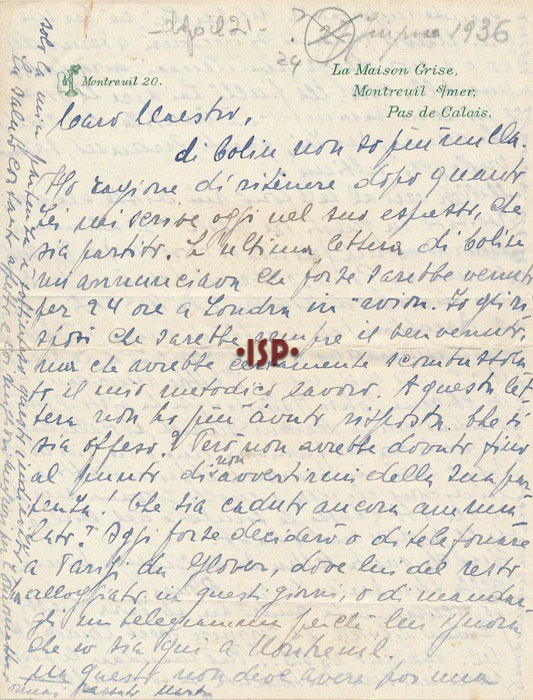 -April 21-
24 giugno 1936
24
Montreuil 20.
La Maison Grise,
Montreuil s/mer,
Pas de Calais.
Caro Maestro,
di Colin non so più nulla.
Ho ragione di ritenere dopo quanto
Lei mi scrive oggi nel suo espresso, che
sia partito. L'ultima lettera di Colin
m'annunciava che forse sarebbe venuto
per 24 ore a Londra in "avion. Io gli ri
sposi che sarebbe sempre il benvenuto,
ma che avrebbe certamente scombussola
to il mio metodico lavoro. A questa let
tera non ho più avuto risposta. Che si
sia offeso? Però non avrebbe dovuto fino
al punto di non avvertirmi della sua par
tenza! Che sia caduto ancora amma
lato? Oggi forse deciderò o di telefonare
a Parigi da Glover, dove lui del resto
alloggiato in questi giorni, o di mandar
gli un telegramma perché lui ignora
che io sia qui a Montreuil.
Ma questo non deve avere per una
·ISP·
solo la mia partenza è
La saluto con tanto affetto e